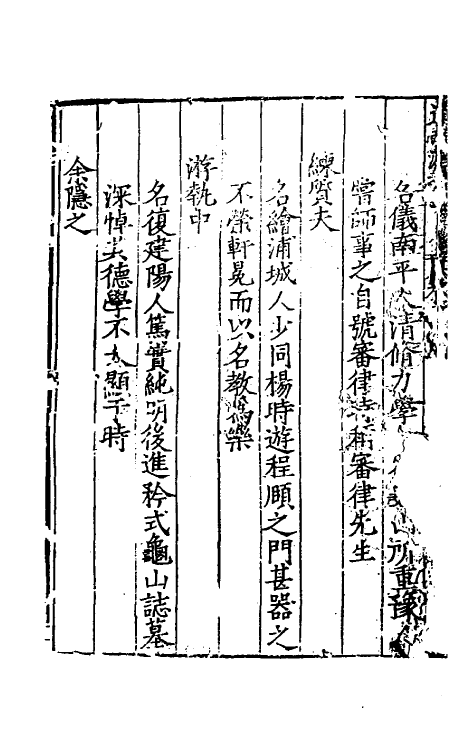 名儀南平人清脩力學
山所重豫
嘗師事之自號審律
稱審律先生
練質夫
名繪浦城人少同楊時遊程頤之門甚器之
不榮軒冕而以名教為樂
游執中
名復建陽人篤實純明後進矜式龜山誌墓
深悼其德學不大顯于時
余隱之